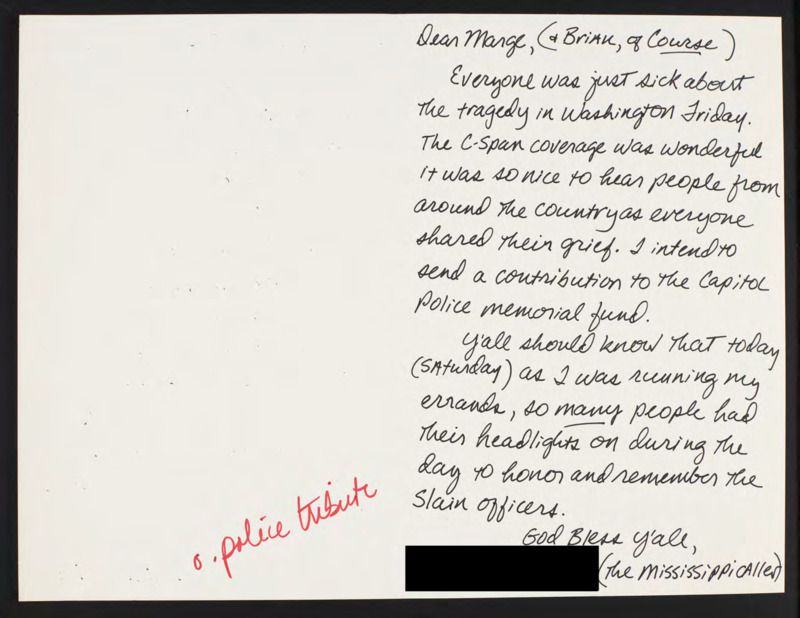 Dear Marge, (& Brian, of Course)
Everyone was just sick about
the tragedy in Washington Friday.
The C-Span coverage was wonderful
it was so nice to hear people from
around the country as everyone
shared their grief. I intend to
send a contribution to the Capitol
Police memorial fund.
Y'all should know that today
(Saturday) as I was running my
errands, so many people had
their headlights on during the
day to honor and remember the
Slain officers.
God Bless y'all,
(the Mississippi caller)
o. police tribute